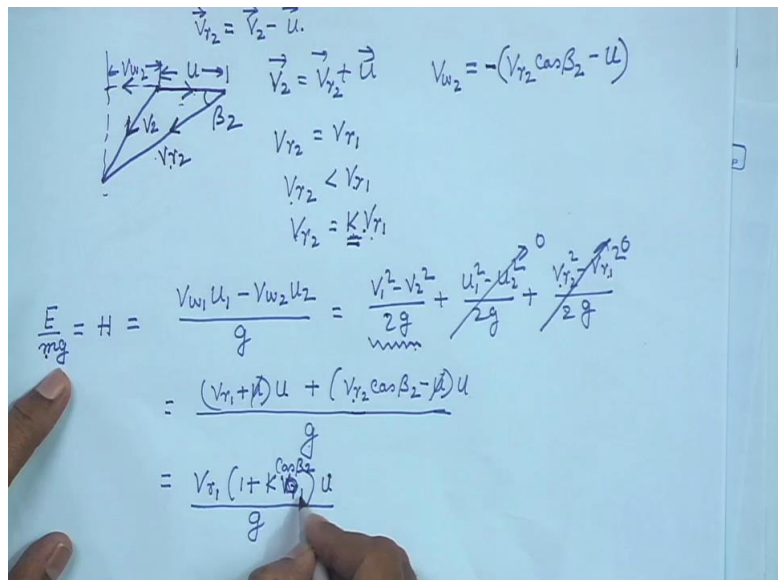 V⃗r2 = V⃗2 - U.
Vw2 U
V2 Vr2 β2
V⃗2 = V⃗r2 + U⃗
Vw2 = -(Vr2 cosβ2 - U)
Vr2 = Vr1
Vr2 < Vr1
Vr2 = K Vr1
E/mg = H = (Vw1 U1 - Vw2 U2)/g = (V1² - V2²)/2g + (U1² - U2²)/2g → 0 + (Vr2² - Vr1²)/2g → 0
= ((Vr1 + U)U + (Vr2 cosβ2 - U)U)/g
= Vr1 (1 + K cosβ2) U/g